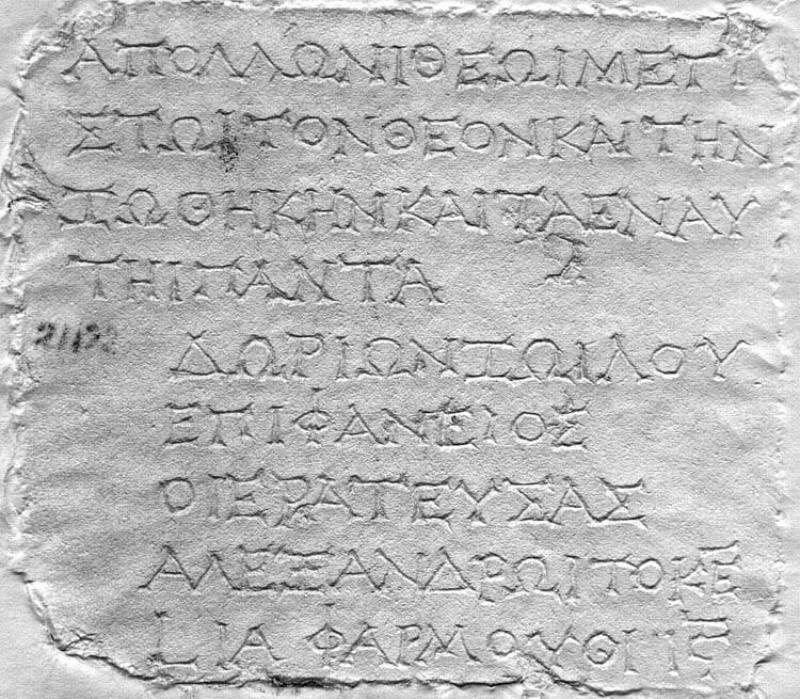 ΑΠΟΛΛΩΝΙΘΕΩΙΜΕΓΙ
ΣΤΩΙΤΟΝΘΕΟΝΚΑΙΤΗΝ
ΖΩΘΗΚΗΝΚΑΙΤΑΕΝΑΥ
ΤΗΙΠΑΝΤΑ
ΔΩΡΙΩΝΖΩΙΛΟΥ
ΕΠΙΦΑΝΕΙΟΣ
ΟΙΕΡΑΤΕΥΣΑΣ
ΑΛΕΞΑΝΔΡΩΙΤΟΚΕ
LΙΑ ΦΑΡΜΟΥΘΙΙϚ